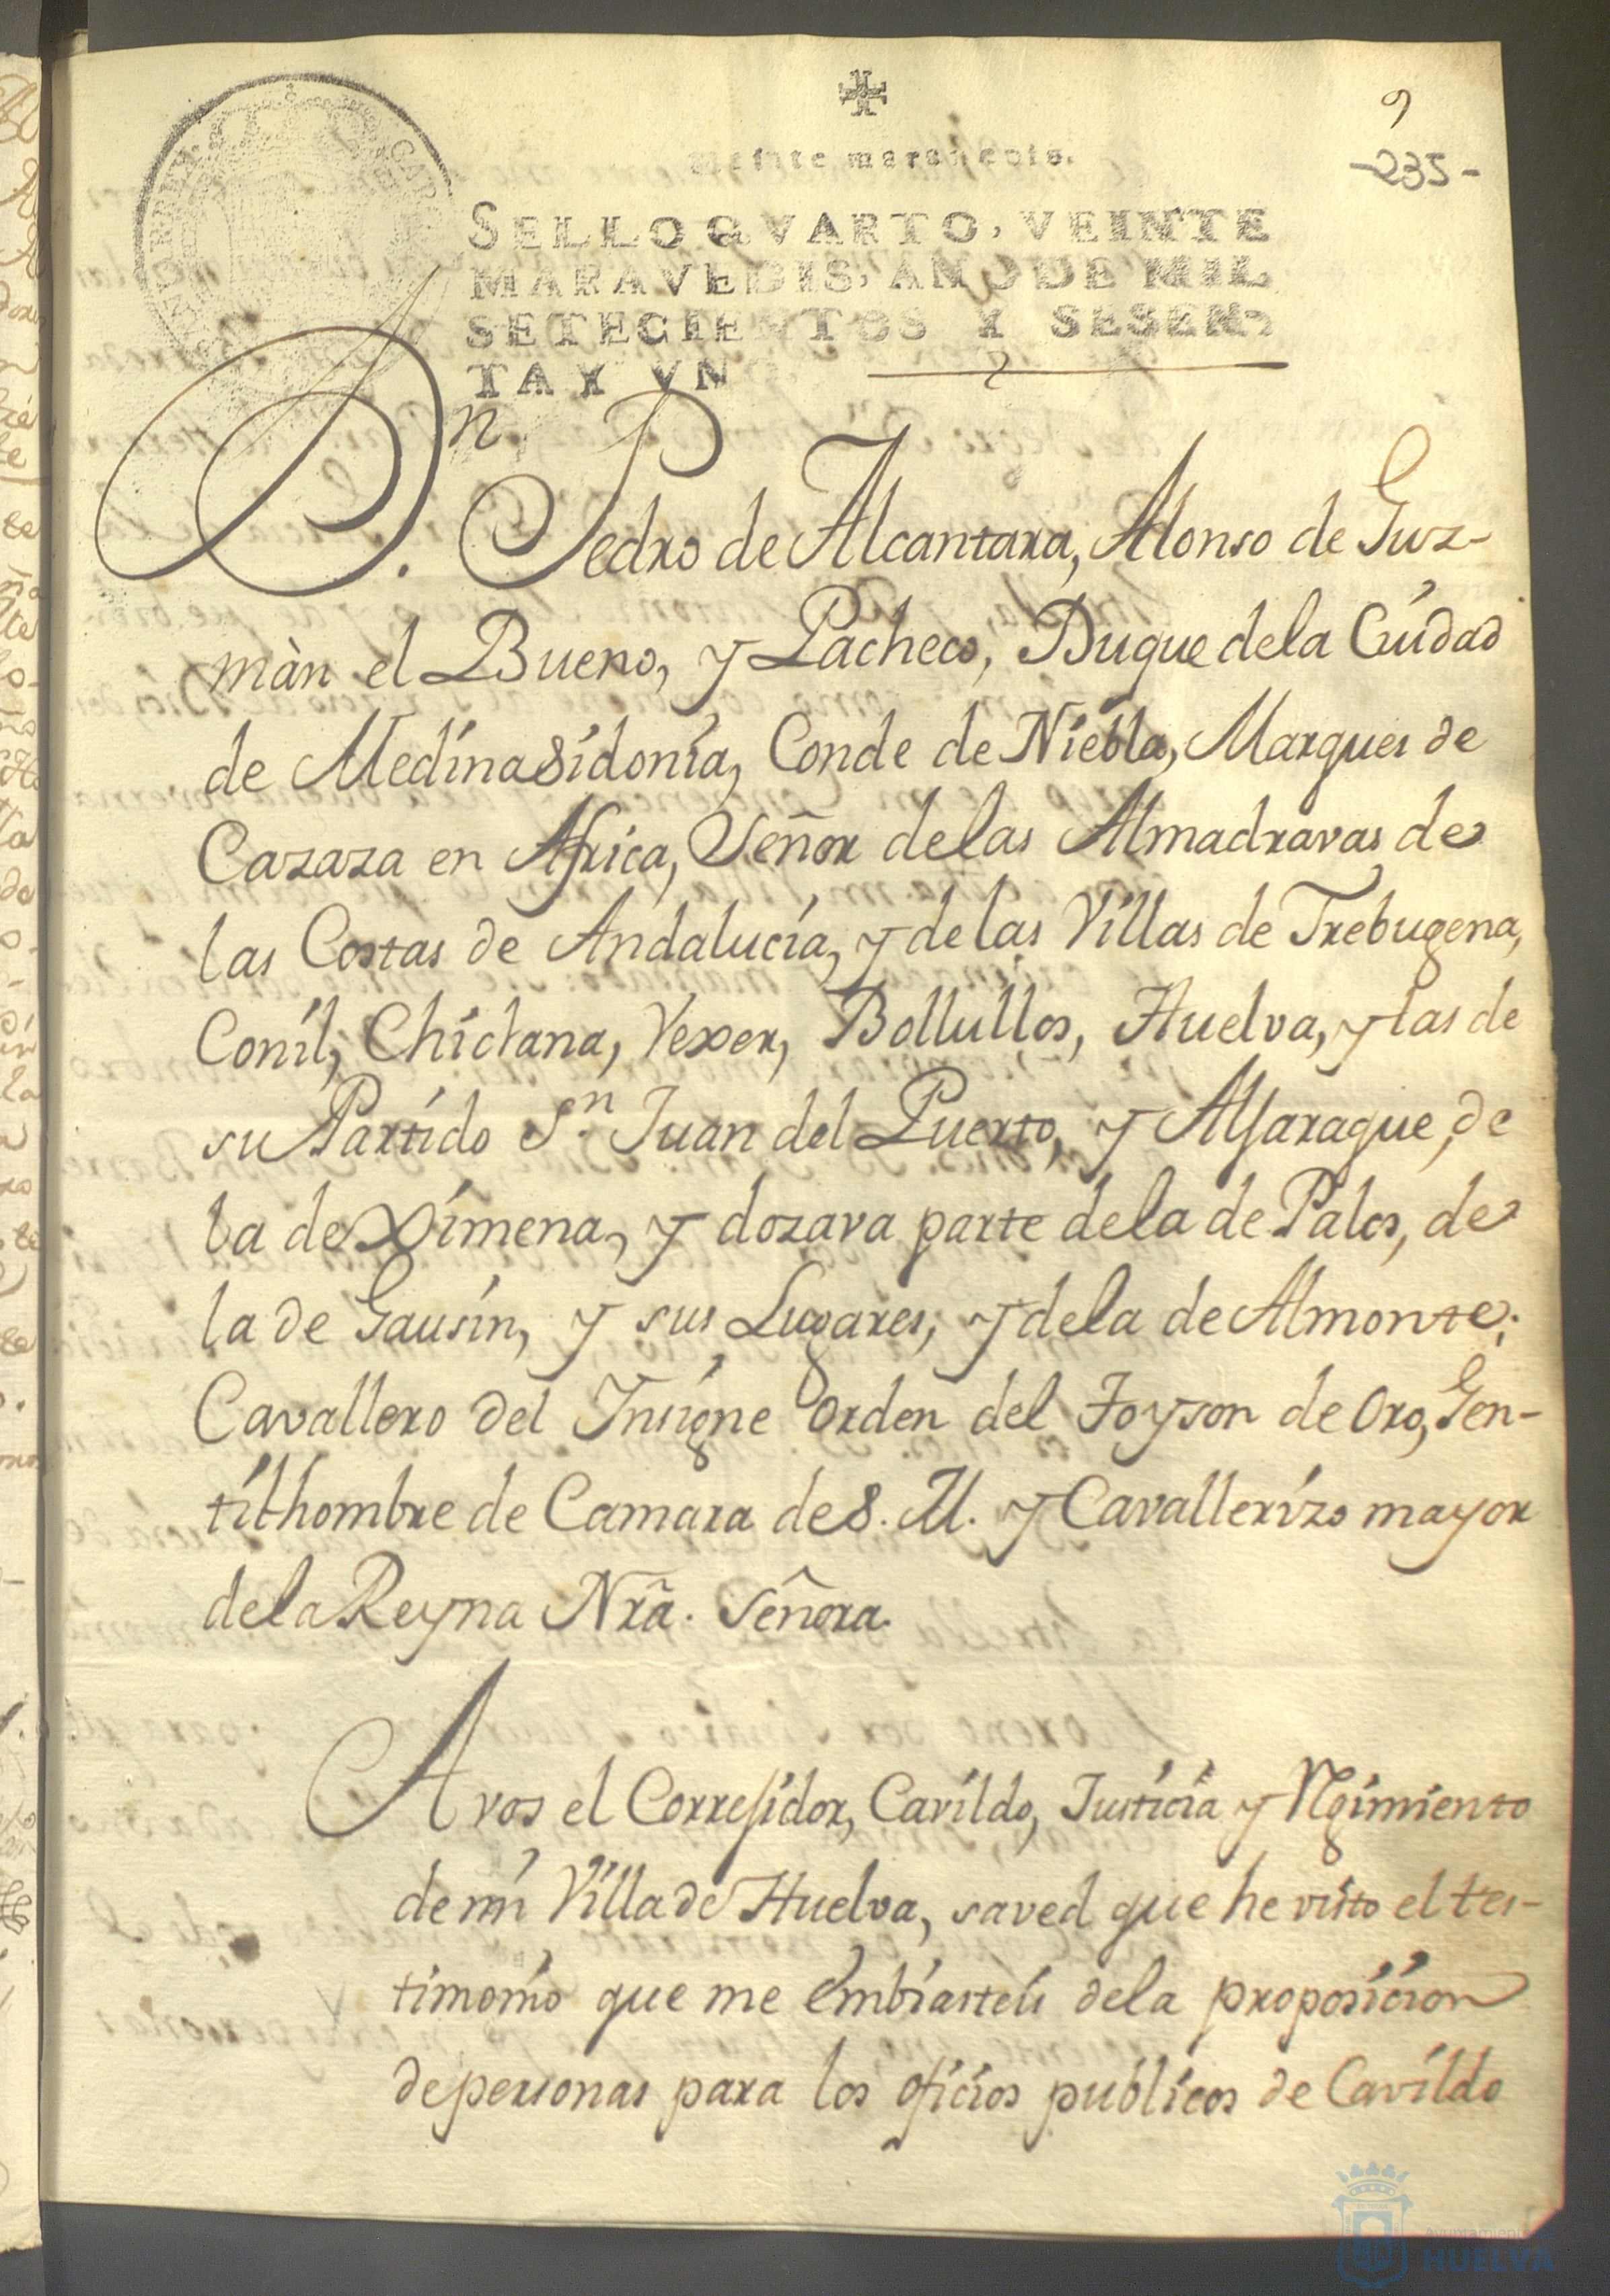 9
-235-
Veinte maravedis.
SELLO QVARTO, VEINTE
MARAVEDIS, AÑO DE MIL
SETECIENTOS Y SESEN-
TA Y VNO.
Dn.
Pedro de Alcantara, Alonso de Guz-
màn el Bueno, y Pacheco, Duque dela Ciudad
de Medinasidonia, Conde de Niebla, Marques de
Cazaza en Africa, Señor delas Almadravas de
las Costas de Andalucia, y de las Villas de Trebugena,
Conil, Chiclana, Vexer, Bollullos, Huelva, y las de
su Partido Sn. Juan del Puerto, y Aljaraque, de
la de Ximena, y dozava parte dela de Palos, de
la de Gausin, y sus Lugares, y dela de Almonte;
Cavallero del Insigne Orden del Toyson de Oro, Gen-
tilhombre de Camara de S. M. y Cavallerizo mayor
dela Reyna Nrã. Señora.
A vos el Corregidor, Cavildo, Justicia y Rgimiento
de mi Villa de Huelva, saved que he visto el tes-
timonio que me embiasteis dela proposicion
de personas para los oficios publicos de Cavildo
Ayuntamiento
HUELVA